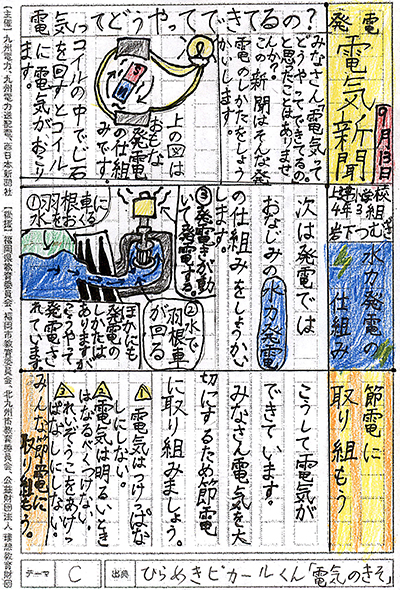 発電
電気新聞
9月13日
4年3組
電気ってどうやってできてるの?
みなさん、電気って
どうやってできてるの
と思ったことはありま
せんか。
この新聞はそんな発
電のしかたをしょう
かいします。
S
N
上の図は
おもな
発電
の仕組
みです。
コイルの中でじ石
を回すとコイル
に電気がおこり
ます。
水力発電の
仕組み
次は発電では
おなじみの水力発電
の仕組みをしょうかい
します。
③発電きが動
いて発電する。
②水で
羽根車
が回る。
①水を羽根車におくる
ほかにも
発電の
しかたは
ありますが
こうやって
発電さ
れています。
節電に
取り組もう
こうして電気が
できています。
みなさん電気を大
切にするため節電
に取り組みましょう。
①電気はつけっぱな
しにしない。
②電気は明るいとき
はなるべくつけない。
③れいぞうこをあけっ
ぱなしにしない。
みんな節電に
取り組もう。
テーマ C 出典 ひらめきピカールくん「電気のきそ」
【主催】九州電力、九州電力送配電、西日本新聞社 【後援】福岡県教育委員会、福岡市教育委員会、北九州市教育委員会、公益財団法人 理想教育財団